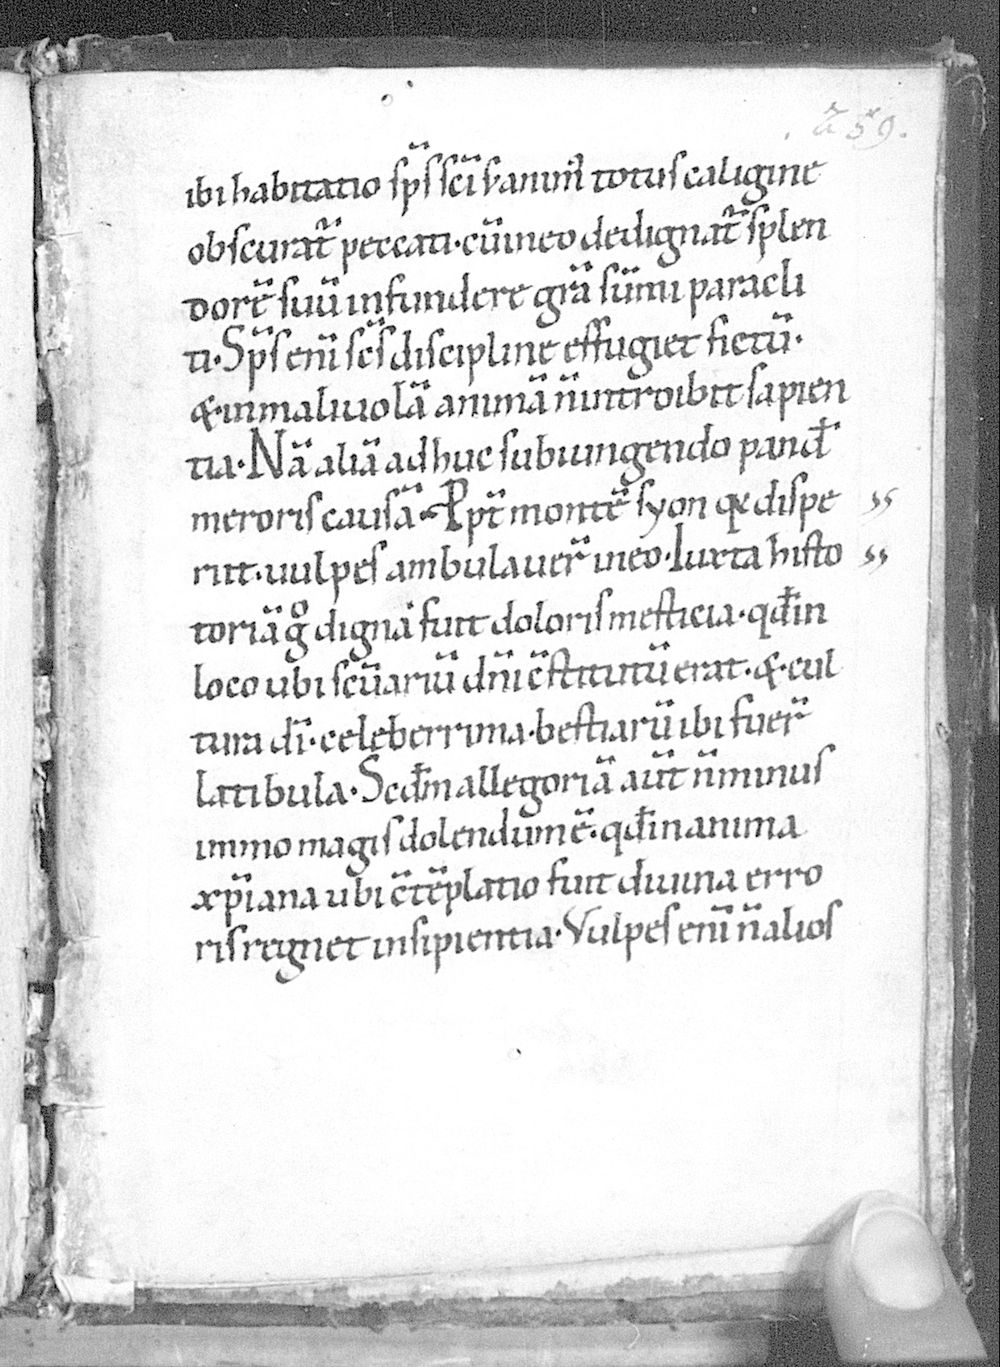 ā 59.
ibi habitatio sp̄s sc̄i s; animꝰ totus caligine
obscurat̄ peccati· cū in eo dedignat̄ splen
dorē suū infundere grā sūmi paracli
ti· Sp̄s eni̅ sc̄s discipline effugiet fictū·
& in maliuolā animā n̄ introibit sapien
tia· Nā aliā adhuc subiungendo pand̄
meroris causā· Ppt̄ montē syon qꝫ dispe
riit· uulpes ambulauer̄ in eo· Iuxta histo
toriā gͦ digna fuit doloris mesticia· qđ in
loco ubi sc̄uariū dn̄i c̄stitutū erat· & cul
tura di̅· celeberrima· bestiarū ibi fuer̄
latibula· Scđm allegoriā aūt n̄ minus
immo magis dolendum ē· qđ in anima
xp̄iana ubi c̄tēplatio fuit diuina erro
ris regnet insipientia· Vulpes eni̅ n̄ alios